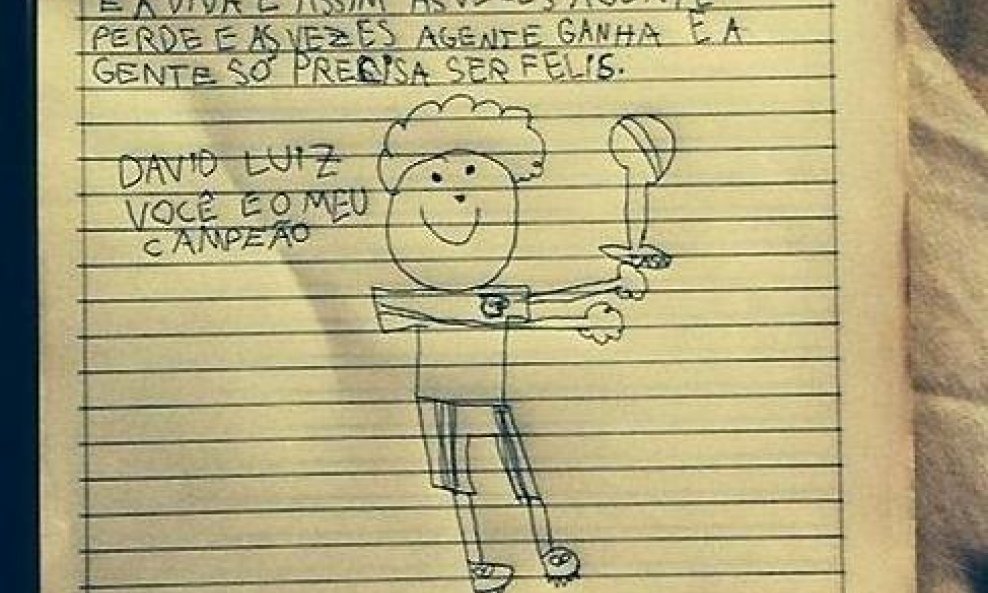 E A VIDA E ASSIM AS VEZES AGENTE
PERDE E AS VEZES AGENTE GANHA E A
GENTE SÓ PRECISA SER FELIS.
DAVID LUIZ
VOCÊ E O MEU
CAMPEÃO